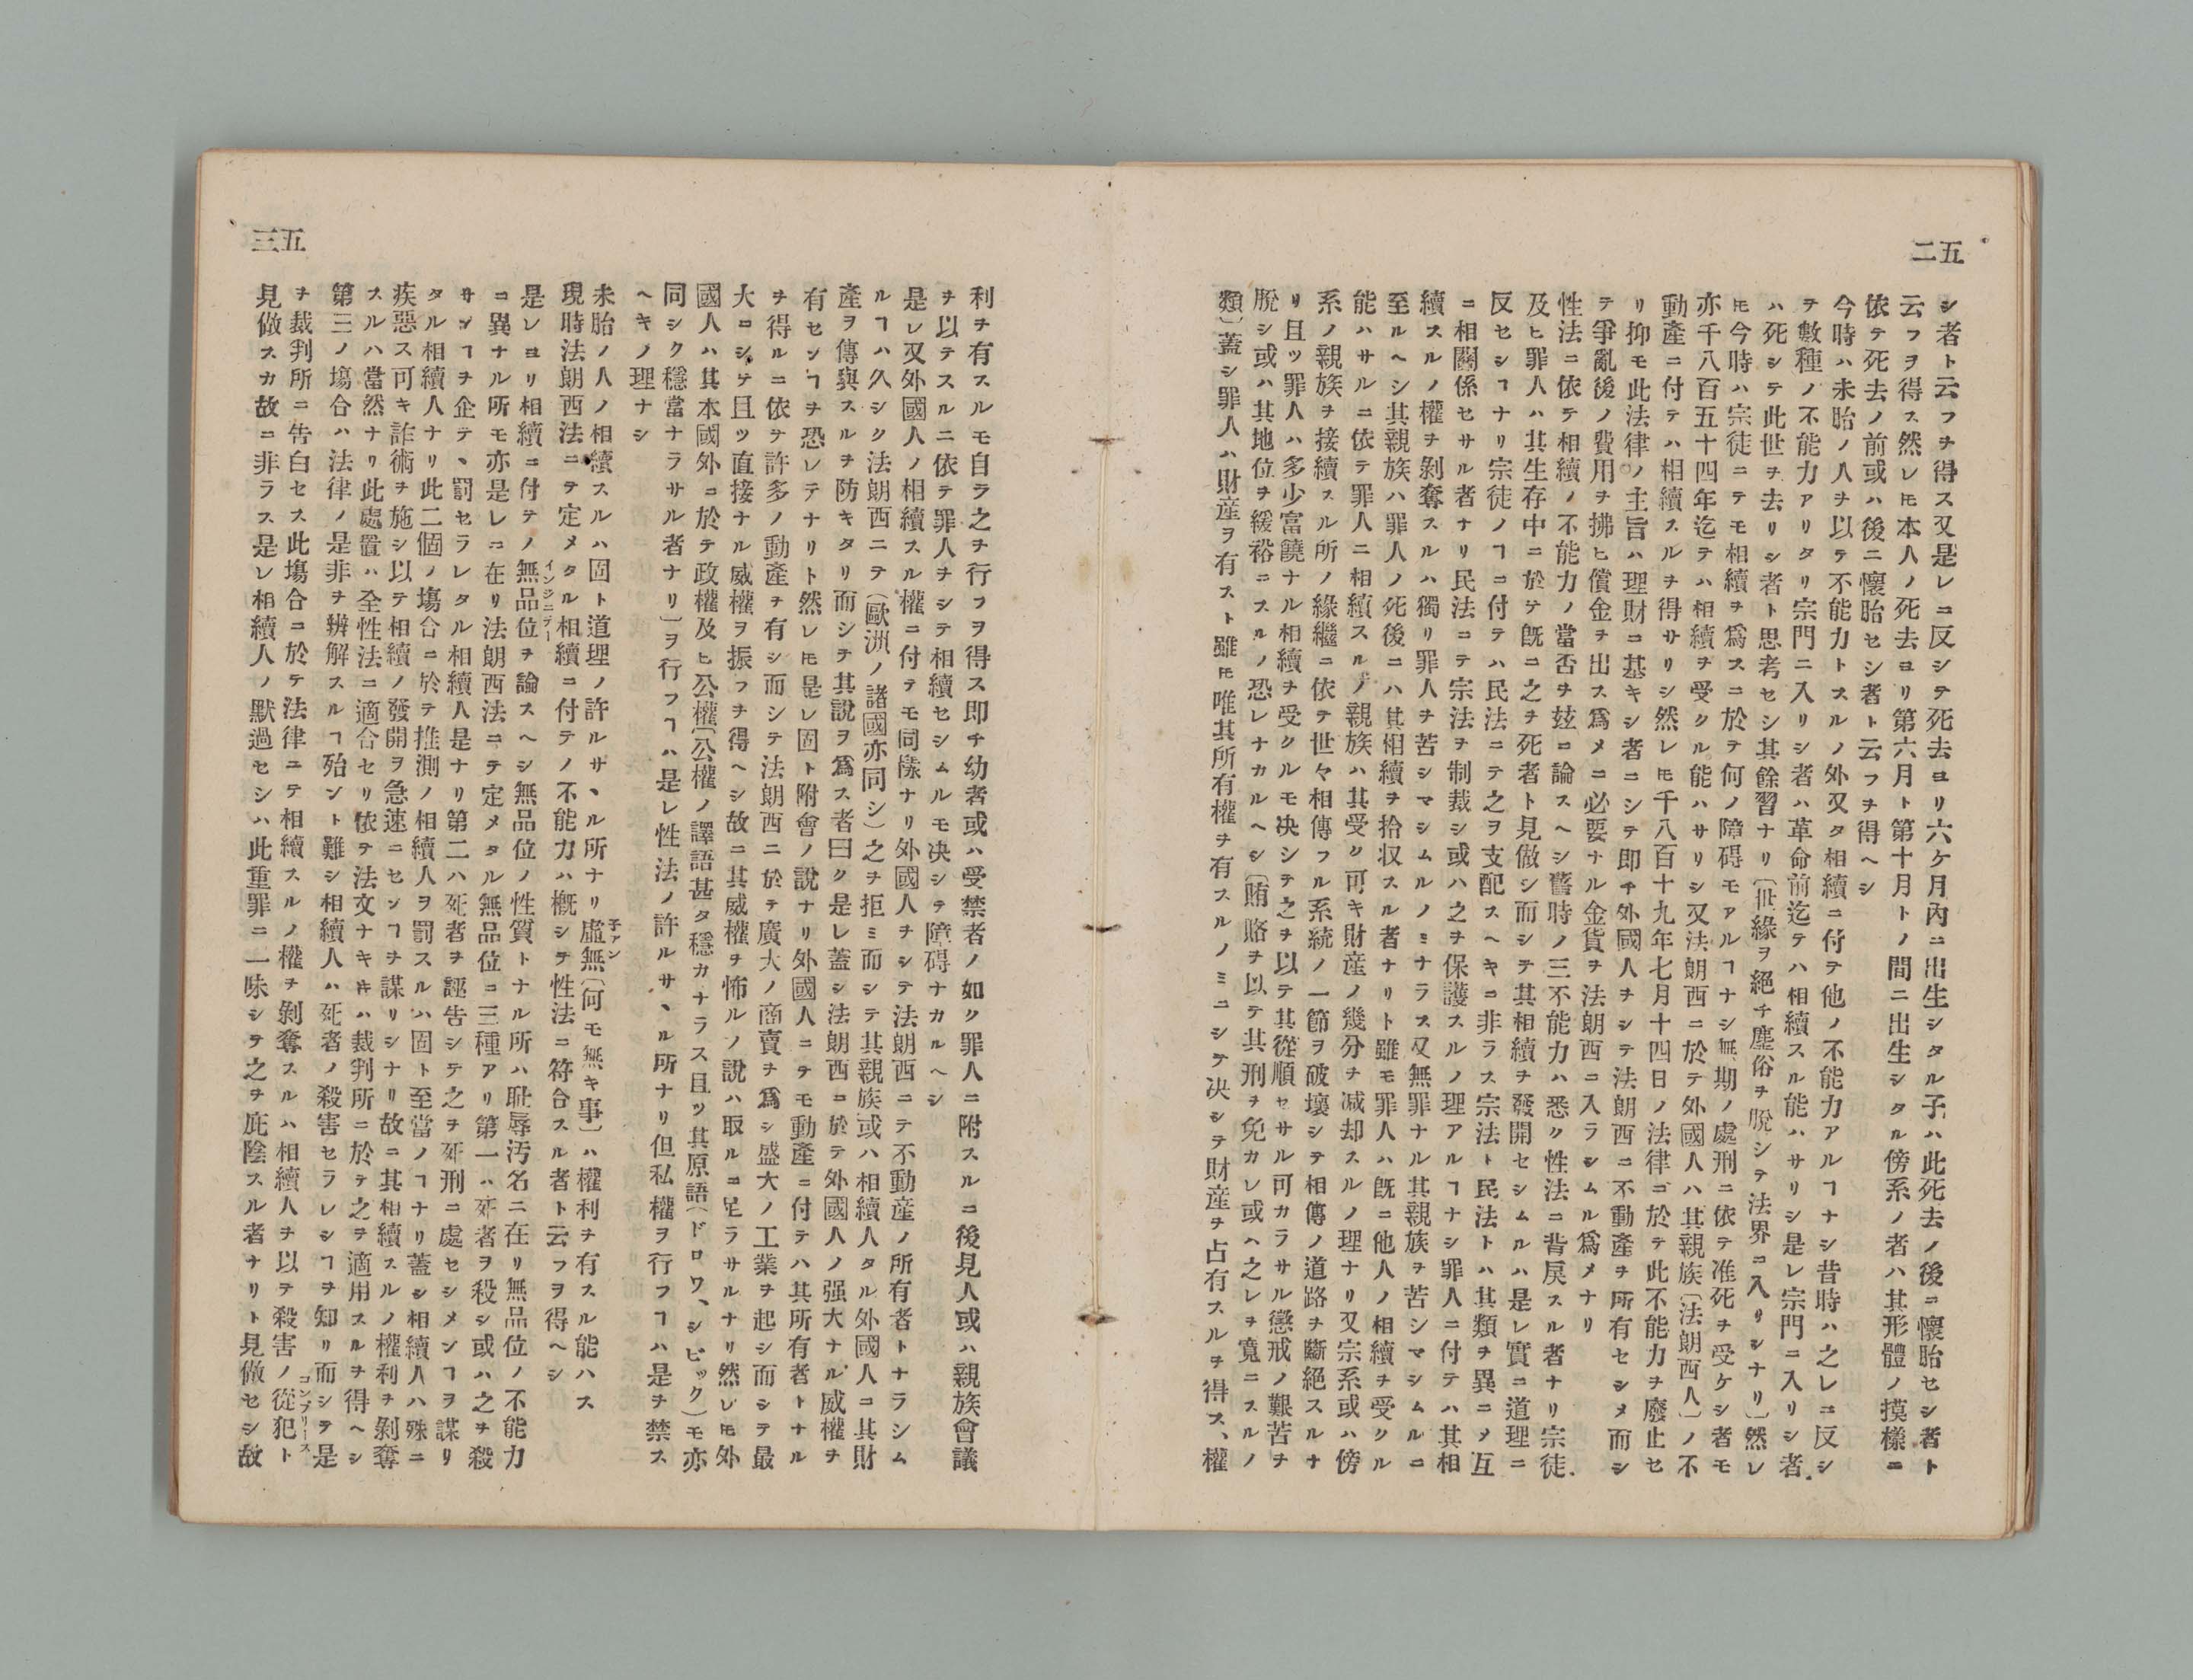 二五
シ者ト云フヲ得ス又是レニ反シテ死去ヨリ六ケ月內ニ出生シタル子ハ此死去ノ後ニ懷胎セシ者ト
云フヲ得ス然レ𪜈本人ノ死去ヨリ第六月ト第十月トノ間ニ出生シタル傍系ノ者ハ其形體ノ摸樣ニ
依テ死去ノ前或ハ後ニ懷胎セシ者ト云フヲ得ヘシ
今時ハ未胎ノ人ヲ以テ不能力トスルノ外又タ相續ニ付テ他ノ不能力アルヿナシ昔時ハ之レニ反シ
テ數種ノ不能力アリタリ宗門ニ入リシ者ハ革命前迄テハ相續スル能ハサリシ是レ宗門ニ入リシ者
ハ死シテ此世ヲ去リシ者ト思考セシ其餘習ナリ〔世緣ヲ絕チ塵俗ヲ脫シテ法界ニ入リシナリ〕然レ
𪜈今時ハ宗徒ニテモ相續ヲ爲スニ於テ何ノ障碍モアルヿナシ無期ノ處刑ニ依テ准死ヲ受ケシ者モ
亦千八百五十四年迄テハ相續ヲ受クル能ハサリシ又法朗西ニ於テ外國人ハ其親族〔法朗西人〕ノ不
動產ニ付テハ相續スルヲ得サリシ然レ𪜈千八百十九年七月十四日ノ法律ニ於テ此不能力ヲ廢止セ
リ抑モ此法律ノ主旨ハ理財ニ基キシ者ニシテ即チ外國人ヲシテ法朗西ニ不動產ヲ所有セシメ而シ
テ爭亂後ノ費用ヲ拂ヒ償金ヲ出ス爲メニ必要ナル金貨ヲ法朗西ニ入ラシムル爲メナリ
性法ニ依テ相續ノ不能力ノ當否ヲ玆ニ論スヘシ舊時ノ三不能力ハ悉ク性法ニ背戾スル者ナリ宗徒
及ヒ罪人ハ其生存中ニ於テ旣ニ之ヲ死者ト見做シ而シテ其相續ヲ發開セシムルハ是レ實ニ道理ニ
反セシヿナリ宗徒ノヿニ付テハ民法ニテ之ヲ支配スヘキニ非ラス宗法ト民法トハ其類ヲ異ニメ互
ニ相關係セサル者ナリ民法ニテ宗法ヲ制裁シ或ハ之ヲ保護スルノ理アルヿナシ罪人ニ付テハ其相
續スルノ權ヲ剝奪スルハ獨リ罪人ヲ苦シマシムルノミナラス又無罪ナル其親族ヲ苦シマシムルニ
至ルヘシ其親族ハ罪人ノ死後ニハ其相續ヲ拾収スル者ナリト雖モ罪人ハ旣ニ他人ノ相續ヲ受クル
能ハサルニ依テ罪人ニ相續スルノ親族ハ其受ク可キ財産ノ幾分ヲ減却スルノ理ナリ又宗系或ハ傍
系ノ親族ヲ接續スル所ノ緣繼ニ依テ世々相傳フル系統ノ一節ヲ破壞シテ相傳ノ道路ヲ斷絕スルナ
リ且ツ罪人ハ多少富饒ナル相續ヲ受クルモ决シテ之ヲ以テ其從順セサル可カラサル懲戒ノ艱苦ヲ
脫シ或ハ其地位ヲ緩裕ニスルノ恐レナカルヘシ〔賄賂ヲ以テ其刑ヲ免カレ或ハ之レヲ寬ニスルノ
類〕蓋シ罪人ハ財産ヲ有スト雖𪜈唯其所有權ヲ有スルノミニシテ决シテ財産ヲ占有スルヲ得ス、權
三五
利ヲ有スルモ自ラ之ヲ行フヲ得ス即チ幼者或ハ受禁者ノ如ク罪人ニ附スルニ後見人或ハ親族會議
ヲ以テスルニ依テ罪人ヲシテ相續セシムルモ决シテ障碍ナカルヘシ
是レ又外國人ノ相續スル權ニ付テモ同樣ナリ外國人ヲシテ法朗西ニテ不動産ノ所有者トナラシム
ルヿハ久シク法朗西ニテ(歐洲ノ諸國亦同シ)之ヲ拒ミ而シテ其親族或ハ相續人タル外國人ニ其財
產ヲ傳與スルヲ防キタリ而シテ其說ヲ爲ス者曰ク是レ蓋シ法朗西ニ於テ外國人ノ强大ナル威權ヲ
有センヿヲ恐レテナリト然レ𪜈是レ固ト附會ノ說ナリ外國人ニテモ動産ニ付テハ其所有者トナル
ヲ得ルニ依テ許多ノ動產ヲ有シ而シテ法朗西ニ於テ廣大ノ商賣ヲ爲シ盛大ノ工業ヲ起シ而シテ最
大ニシテ且ツ直接ナル威權ヲ振フヲ得ヘシ故ニ其威權ヲ怖ルノ說ハ取ルニ足ラサルナリ然レ𪜈外
國人ハ其本國外ニ於テ政權及ヒ公權〔公權ノ譯語甚タ穩カナラス且ツ其原語(ドロワ、シビック)モ亦
同シク穩當ナラサル者ナリ〕ヲ行フヿハ是レ性法ノ許ルサヽル所ナリ但私權ヲ行フヿハ是ヲ禁ス
ヘキノ理ナシ
未胎ノ人ノ相續スルハ固ト道理ノ許ルサヽル所ナリ虛無〔何モ無キ事〕ハ權利ヲ有スル能ハス
現時法朗西法ニテ定メタル相續ニ付テノ不能力ハ槪シテ性法ニ符合スル者ト云フヲ得ヘシ
是レヨリ相續ニ付テノ無品位ヲ論スヘシ無品位ノ性質トナル所ハ耻辱汚名ニ在リ無品位ノ不能力
ニ異ナル所モ亦是レニ在リ法朗西法ニテ定メタル無品位ニ三種アリ第一ハ死者ヲ殺シ或ハ之ヲ殺
サンヿヲ企テヽ罰セラレタル相續人是ナリ第二ハ死者ヲ誣告シテ之ヲ死刑ニ處セシメンヿヲ謀リ
タル相續人ナリ此二個ノ塲合ニ於テ推測ノ相續人ヲ罰スルハ固ト至當ノヿナリ蓋シ相續人ハ殊ニ
疾惡ス可キ詐術ヲ施シ以テ相續ノ發開ヲ急速ニセンヿヲ謀リシナリ故ニ其相續スルノ權利ヲ剝奪
スルハ當然ナリ此處置ハ全性法ニ適合セリ依テ法文ナキ𪜈ハ裁判所ニ於テ之ヲ適用スルヲ得ヘシ
第三ノ塲合ハ法律ノ是非ヲ辨解スルヿ殆ント難シ相續人ハ死者ノ殺害セラレシヿヲ知リ而シテ是
ヲ裁判所ニ告白セス此塲合ニ於テ法律ニテ相續スルノ權ヲ剝奪スルハ相續人ヲ以テ殺害ノ從犯ト
見做スカ故ニ非ラス是レ相續人ノ默過セシハ此重罪ニ一味シテ之ヲ庇陰スル者ナリト見做セシ故